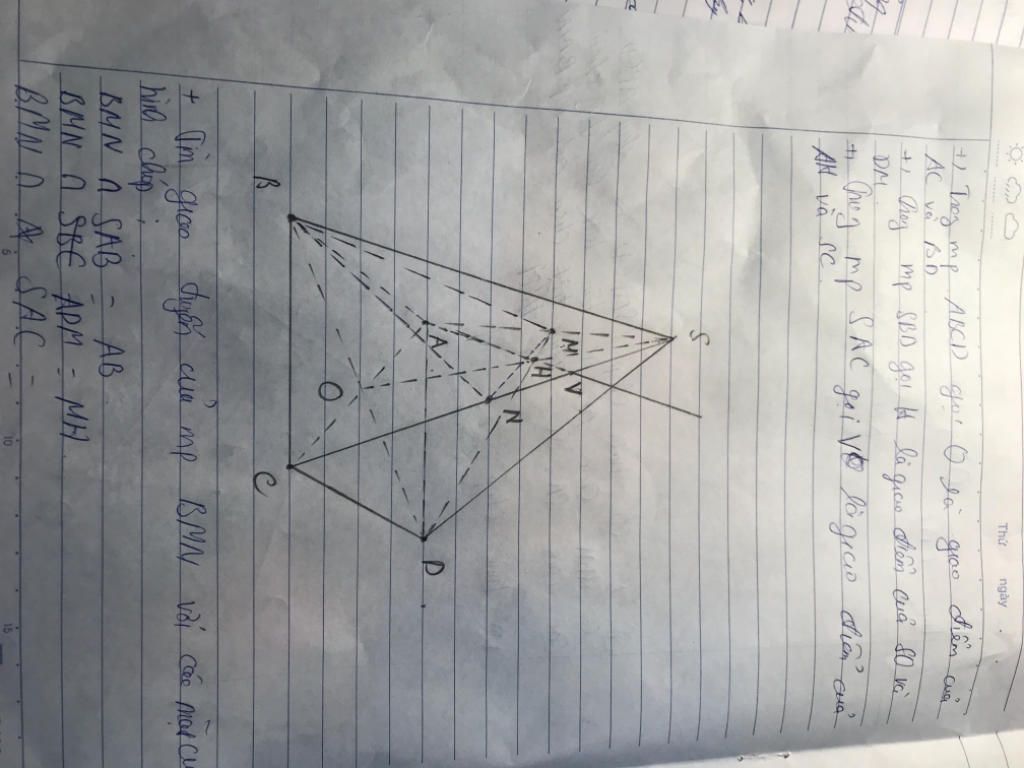 Thứ
ngày
+) Trong mp ABCD gọi O là giao điểm của
AC và BD
+, Trong mp SBD gọi H là giao điểm của SO và
DM.
+, Trong mp SAC gọi V là giao điểm của
AH và SC.
S
M
H
V
A
N
B
O
C
D
+ Tìm giao tuyến của mp BMN với các mặt củ
hình chóp:
BMN ∩ SAB = AB
BMN ∩ ADM = MH
BMN ∩ SAC =
5
10
15